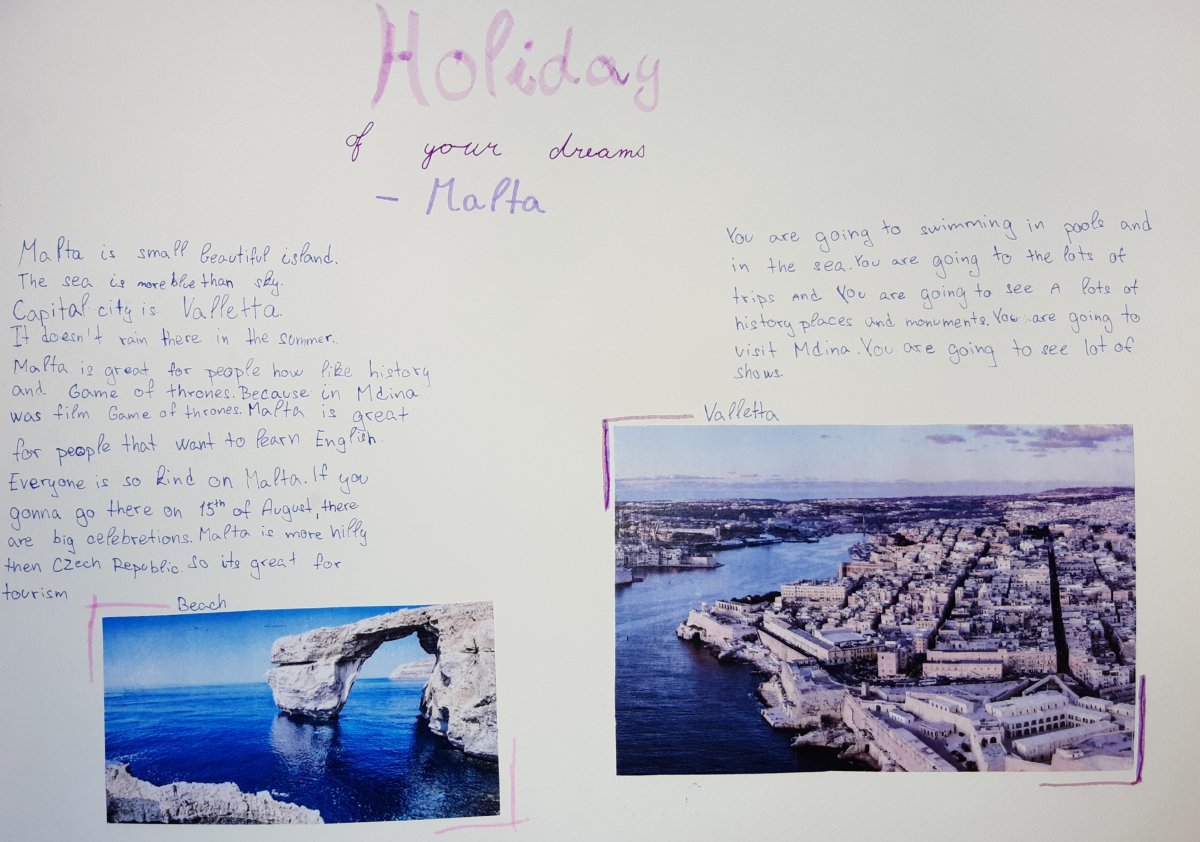 Holiday
of your dreams
- Malta
Malta is small beautiful island.
The sea is more blue than sky.
Capital city is Valletta.
It doesn't rain there in the summer.
Malta is great for people how like history
and Game of thrones. Because in Mdina
was film Game of thrones. Malta is great
for people that want to learn English.
Everyone is so kind on Malta. If you
gonna go there on 15th of August, there
are big celebretions. Malta is more hilly
then Czech Republic. So its great for
tourism
Beach
You are going to swimming in pools and
in the sea. You are going to the lots of
trips and You are going to see A lots of
history places and monuments. You are going to
visit Mdina. You are going to see lot of
shows.
Valletta